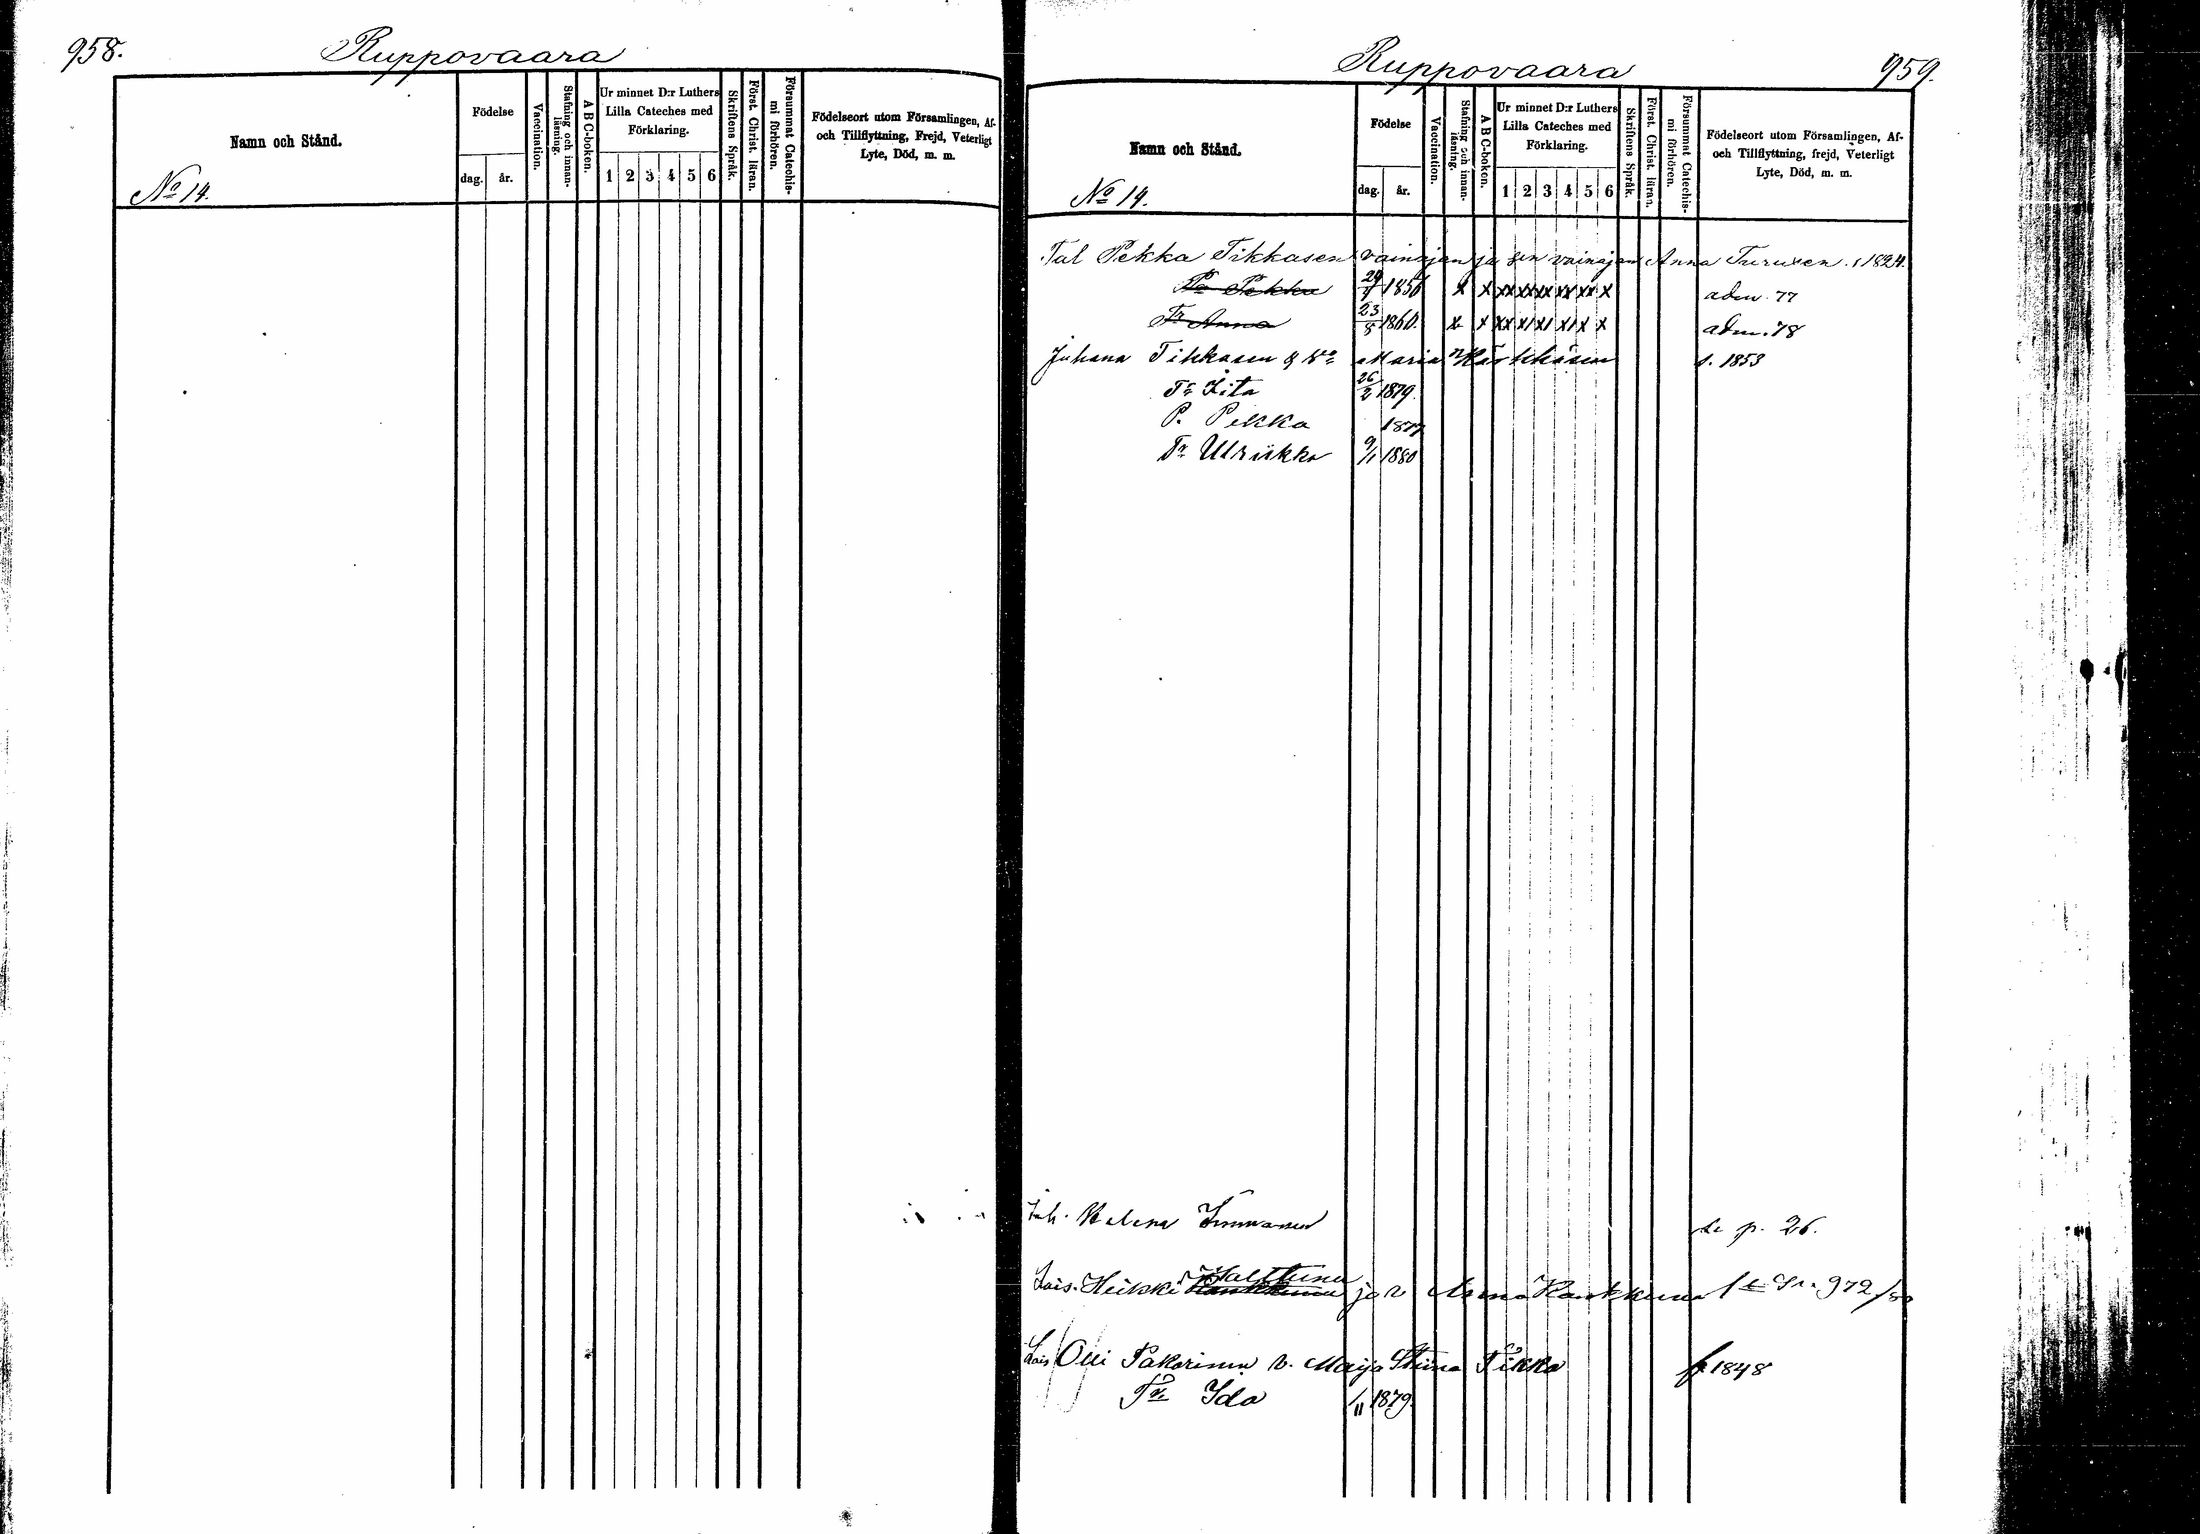 958.
Ruppovaara
Namn och Stånd.
Födelse
dag.
år.
Vaccination.
Stafning och innanläsning.
A B C-boken.
Ur minnet D:r Luthers
Lilla Cateches med
Förklaring.
1 2 3 4 5 6
Skriftens Språk.
Först. Christ. läran.
Försummat Catechismi förhören.
Födelseort utom Församlingen, Af-
och Tillflyttning, Frejd, Veterligt
Lyte, Död, m. m.
No 14.
Ruppovaara
959.
Namn och Stånd.
Födelse
dag.
år.
Vaccination.
Stafning och innanläsning.
A B C-boken.
Ur minnet D:r Luthers
Lilla Cateches med
Förklaring.
1 2 3 4 5 6
Skriftens Språk.
Först. Christ. läran.
Försummat Catechismi förhören.
Födelseort utom Församlingen, Af-
och Tillflyttning, frejd, Veterligt
Lyte, Död, m. m.
No 14.
Tal Pekka Tikkasen vainajan ja sen vainajan Anna Turusen. s 1824.
Pa Pekka 1856 x x xx xx xx xx xx x adm. 77
Tr Anna 23/8 1860. x x xx x x x x x adm. 78
Juhana Tikkasen & Va Maria Kärkkäsen s. 1853
Tr Iita 26/2 1879.
P. Pekka 1877
Tr Ulriikka 9/11 1880
Helena p. 26.
Lois. Heikki Kankkunen ja v Anna Kankkunen 972/80
Lois Olli Pakarinen v. Maija Stiina Tikka f 1848
Tr Ida /11 1879.